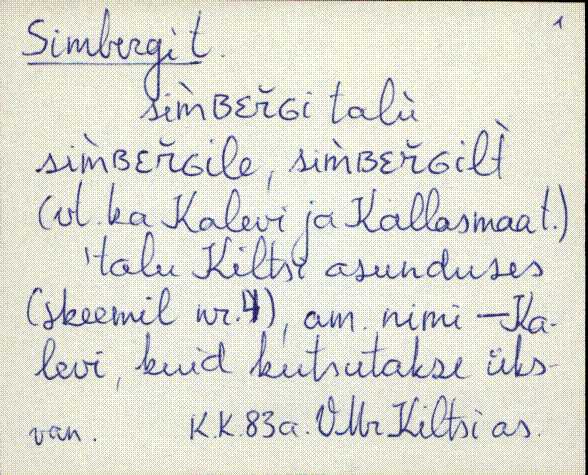 1
Simbergi t.
sim̀BEřGi talù
sim̀BEřGile, sim̀BERˇGilt̀
(vt. ka Kalevi ja Kallasmaa t.)
'talu Kiltsi asunduses
(skeemil nr. 4), am. nimi – Ka-
levi, kuid kutsutakse üks-
van. K.K. 83a. VMr Kiltsi as.